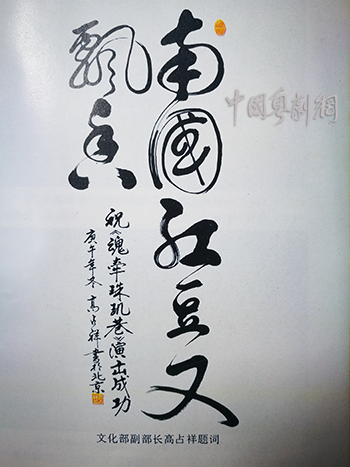 南國红豆又
飘香
祝《魂牵珠玑巷》演出成功
庚午年冬 高占祥书於北京
文化部副部长高占祥题词
中國粤劇網